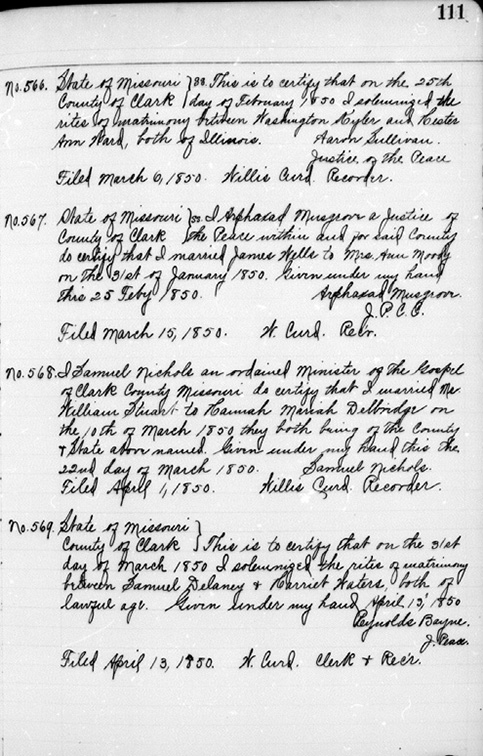 111
No. 566. State of Missouri } ss. This is to certify that on the 25th
County of Clark } day of February 1850 I solemnized the
rites of matrimony between Washington Hyler and Hester
Ann Ward, both of Illinois. Aaron Sullivan.
Justice of the Peace
Filed March 6, 1850. Willis Curd. Recorder.
No. 567. State of Missouri } ss. I Arphaxad Musgrove a Justice of
County of Clark } the Peace within and for said County
do certify that I married James Wells to Mrs. Ann Moody
on the 31st of January 1850. Given under my hand
this 25 Feby 1850. Arphaxad Musgrove.
J. P. C. C.
Filed March 15, 1850. W. Curd. Recr.
No. 568. I Samuel Nichols an ordained Minister of the Gospel
of Clark County Missouri do certify that I married Mr.
William Stuart to Hannah Mariah Delbridge on
the 10th of March 1850 they both being of the County
& State above named. Given under my hand this the
22nd day of March 1850. Samuel Nichols.
Filed April 1, 1850. Willis Curd. Recorder.
No. 569. State of Missouri }
County of Clark } This is to certify that on the 31st
day of March 1850 I solemnized the rites of matrimony
between Samuel Delaney & Harriet Waters, both of
lawful age. Given under my hand April 13, 1850
Reynolds Bayne.
J. Peace.
Filed April 13, 1850. W. Curd. Clerk & Recr.